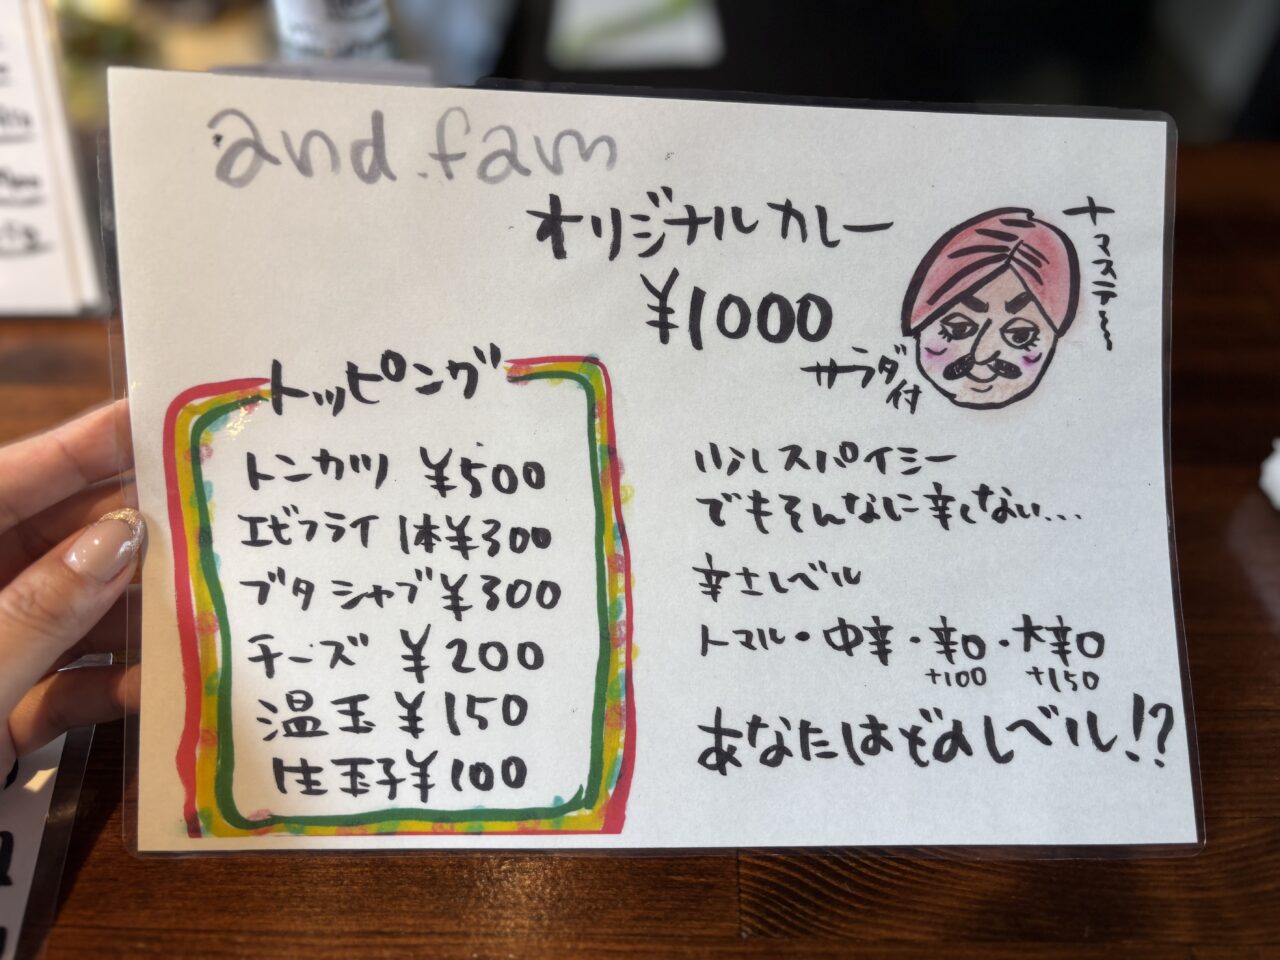 and.fam
オリジナルカレー
¥1000
サラダ付
ナマステ〜
トッピング
トンカツ ¥500
エビフライ 1体¥300
ブタシャブ¥300
チーズ ¥200
温玉 ¥150
生玉子¥100
少しスパイシー
でもそんなに辛くない...
辛さレベル
トマル・中辛・辛口・大辛口
+100 +150
あなたはどのレベル!?